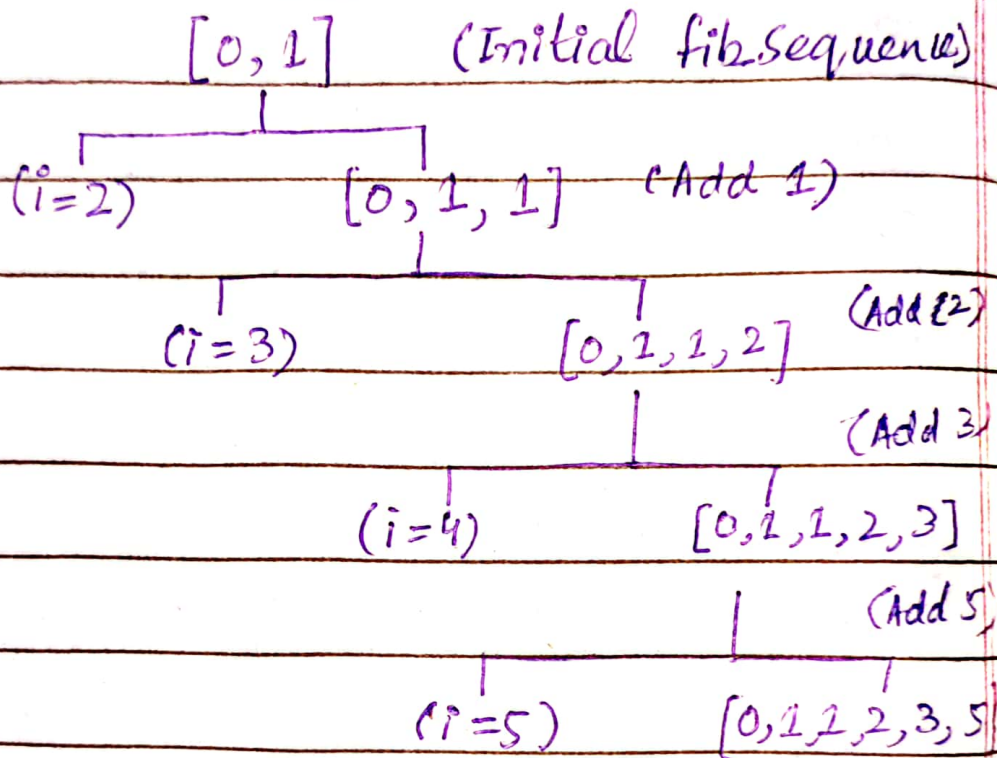 [0, 1] (Initial fib. Sequence)
(i=2) [0, 1, 1] (Add 1)
(Add 2)
(i=3) [0,1,1,2]
(Add 3
(i=4) [0,1,1,2,3]
(Add 5)
(i=5) [0,1,1,2,3,5